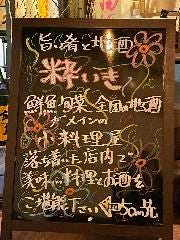 旨い肴と地酒
粋いき
鮮魚、旬菜、全国の地酒
がメインの
小料理屋
落ち着いた店内で
美味しい料理とお酒を
ご堪能下さい